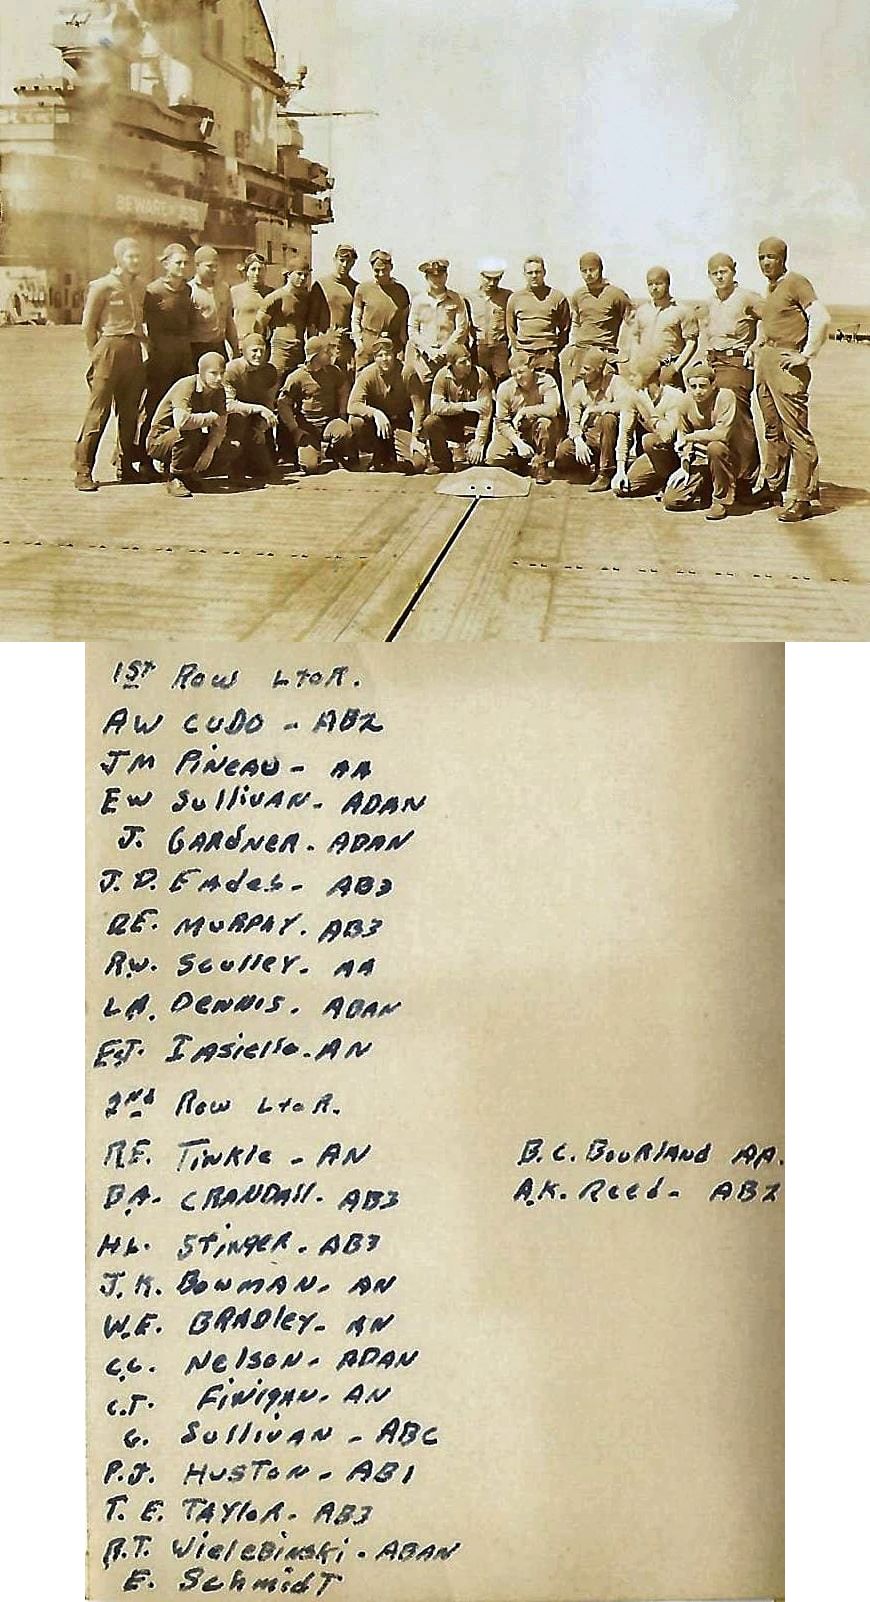 BEWARE
1ST Row L to R.
AW CUDO - AB2
JM PiNeAU - AA
EW SulliVAN - ADAN
J. GARdNeR. ADAN
J.D. EAdes - AB3
RE. MURPHY. AB3
RW. Sculley. AA
L.A. DeNNis. ABAN
E.J. IAsiello. AN
2Nd Row L to R.
RE. TiNkle - AN
B.A. CRANDAll. AB3
HL. STiNgeR. AB3
J.K. BowMAN. AN
W.E. BRADley - AN
C.C. NelsoN - ADAN
C.T. FiNigAN. AN
G. SulliVAN - ABC
P.J. HUSToN - AB1
T. E. TAYloR. AB3
R.T. WieleBiNski. ABAN
E. SchmidT
B.C. BouRlANd AA.
A.K. Reed - AB2